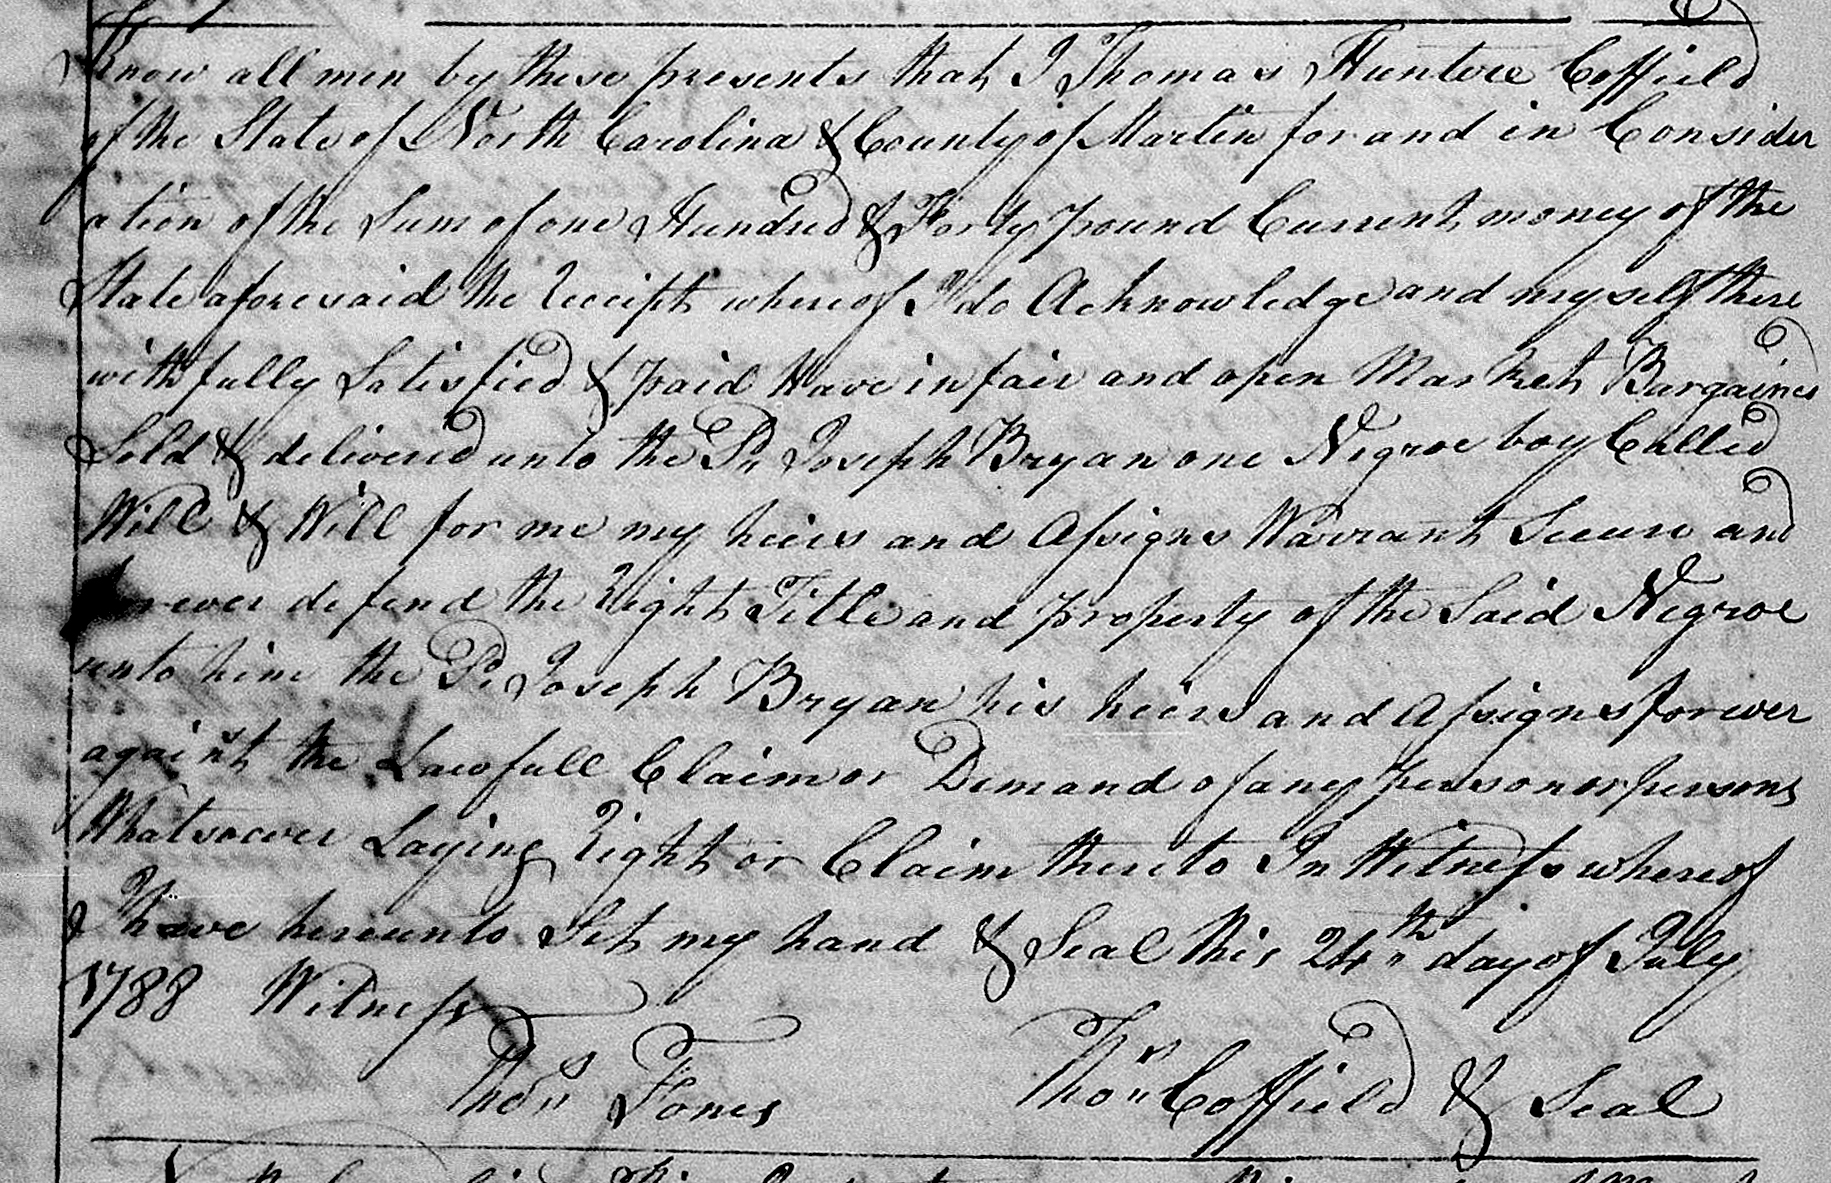 Know all men by these presents that I Thomas Hunter Coffield
of the State of North Carolina & County of Martin for and in Consider
ation of the Sum of one Hundred & Forty pound Current money of the
State aforesaid the Receipt whereof I do Acknowledge and myself there
with fully Satisfied & paid Have in fair and open Market Bargained
Sold & delivered unto the Sd Joseph Bryan one Negroe boy Called
Will & Will for me my heirs and Assigns Warrant Secure and
forever defend the Right Title and property of the Said Negroe
unto him the Sd Joseph Bryan his heirs and Assigns forever
against the Lawfull Claim or Demand of any person or persons
Whatsoever Laying Right or Claim thereto In Witness whereof
I have hereunto Set my hand & Seal this 24th day of July
1788 Witness
Thos Jones Thos Coffield & Seal